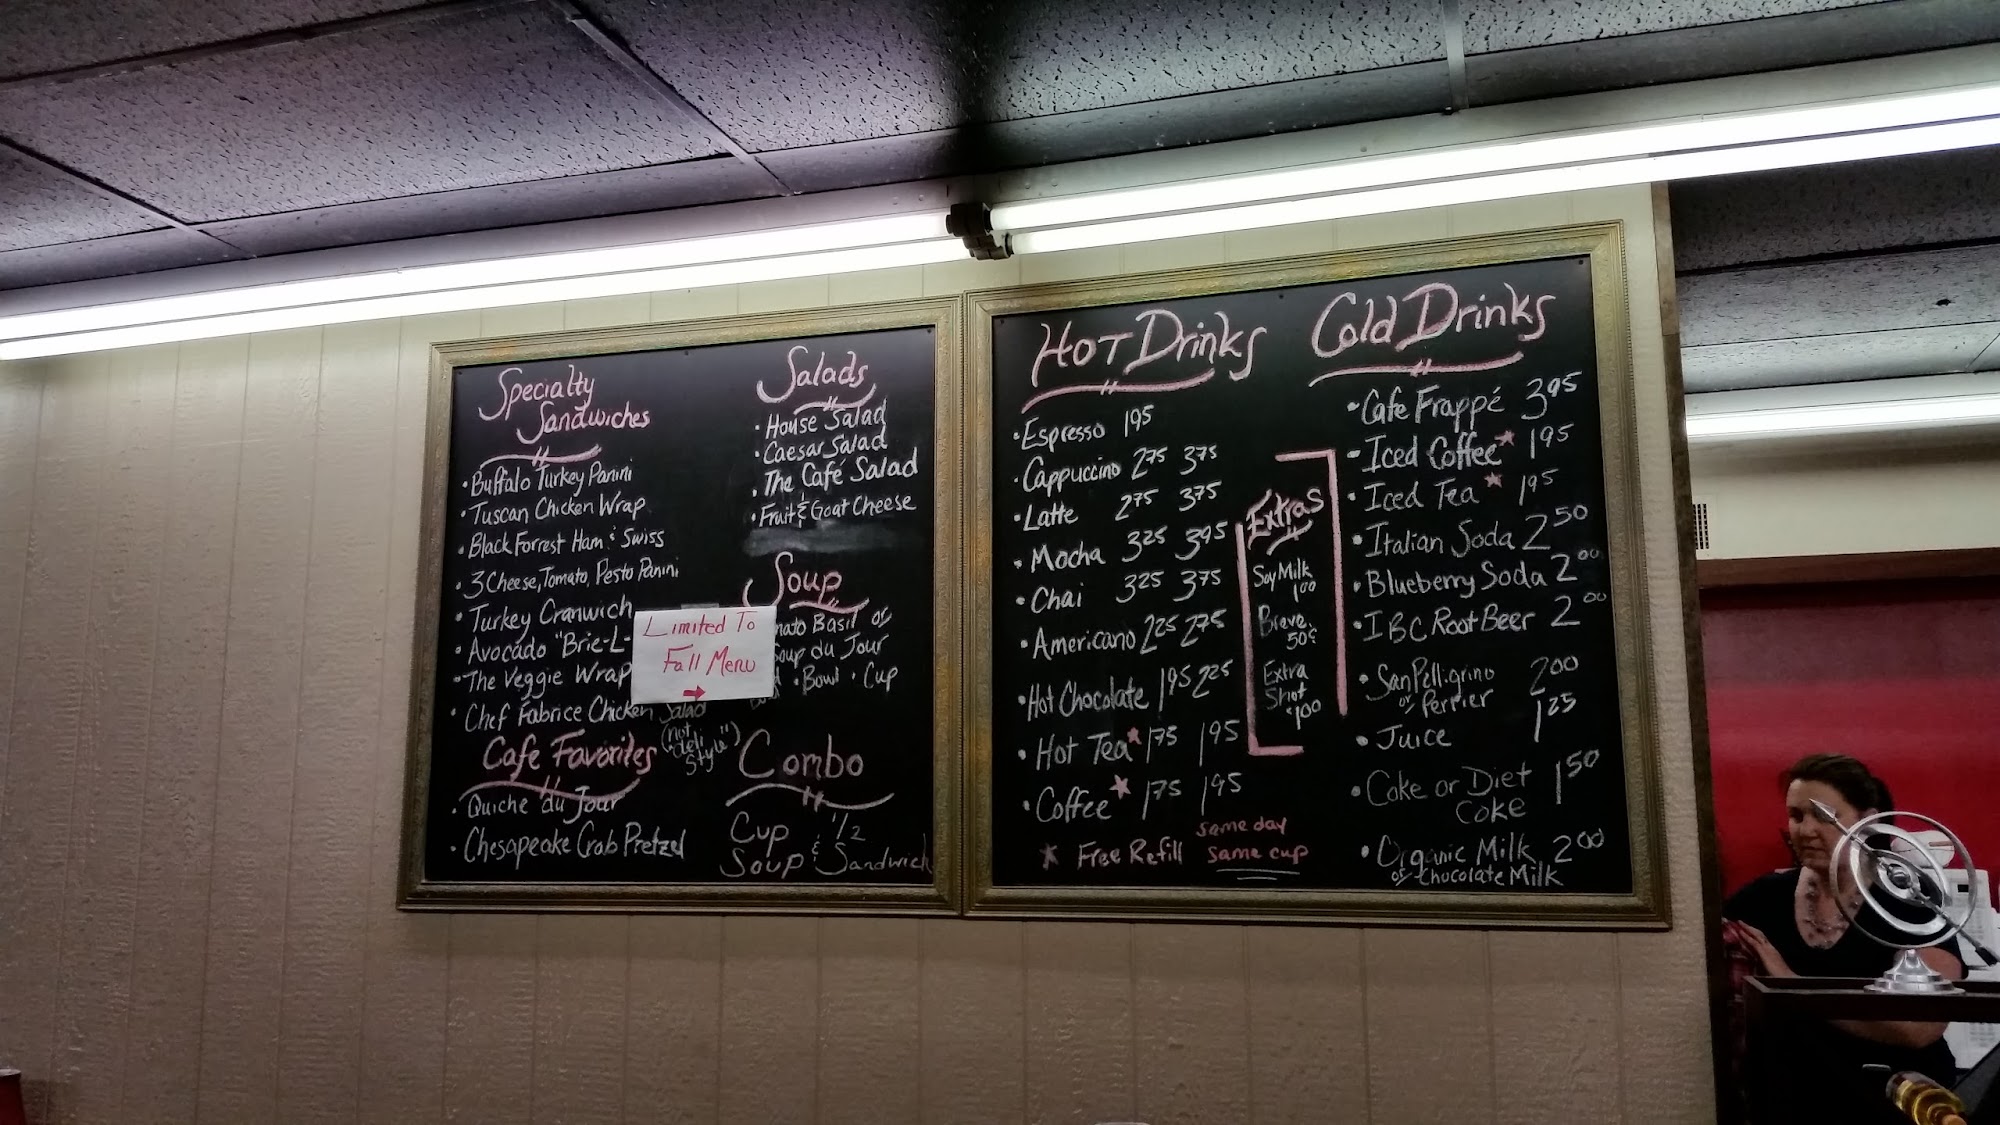 Specialty
Sandwiches
• Buffalo Turkey Panini
• Tuscan Chicken Wrap
• Black Forrest Ham & Swiss
• 3 Cheese, Tomato, Pesto Panini
• Turkey Cranwich
• Avocado "Brie-L-
• The Veggie Wrap
• Chef Fabrice Chicken Salad
(not "deli
style")
Cafe Favorites
• Quiche du Jour
• Chesapeake Crab Pretzel
Salads
• House Salad
• Caesar Salad
• The Café Salad
• Fruit & Goat Cheese
Soup
mato Basil or
Soup du Jour
• Bowl • Cup
Limited To
Fall Menu
→
Combo
Cup & 1/2
Soup Sandwich
Hot Drinks
• Espresso 1 95
• Cappuccino 2 75 3 75
• Latte 2 75 3 75
• Mocha 3 25 3 95
• Chai 3 25 3 75
• Americano 2 25 2 75
• Hot Chocolate 1 95 2 25
• Hot Tea* 1 75 1 95
• Coffee* 1 75 1 95
* Free Refill same day
same cup
Extras
Soy Milk
1.00
Breve
50¢
Extra
Shot
$1.00
Cold Drinks
• Cafe Frappé 3 95
• Iced Coffee* 1 95
• Iced Tea* 1 95
• Italian Soda 2 50
• Blueberry Soda 2 00
• IBC Root Beer 2 00
• San Pelligrino 2 00
or Perrier
• Juice 1 25
• Coke or Diet 1 50
Coke
• Organic Milk 2 00
or Chocolate Milk